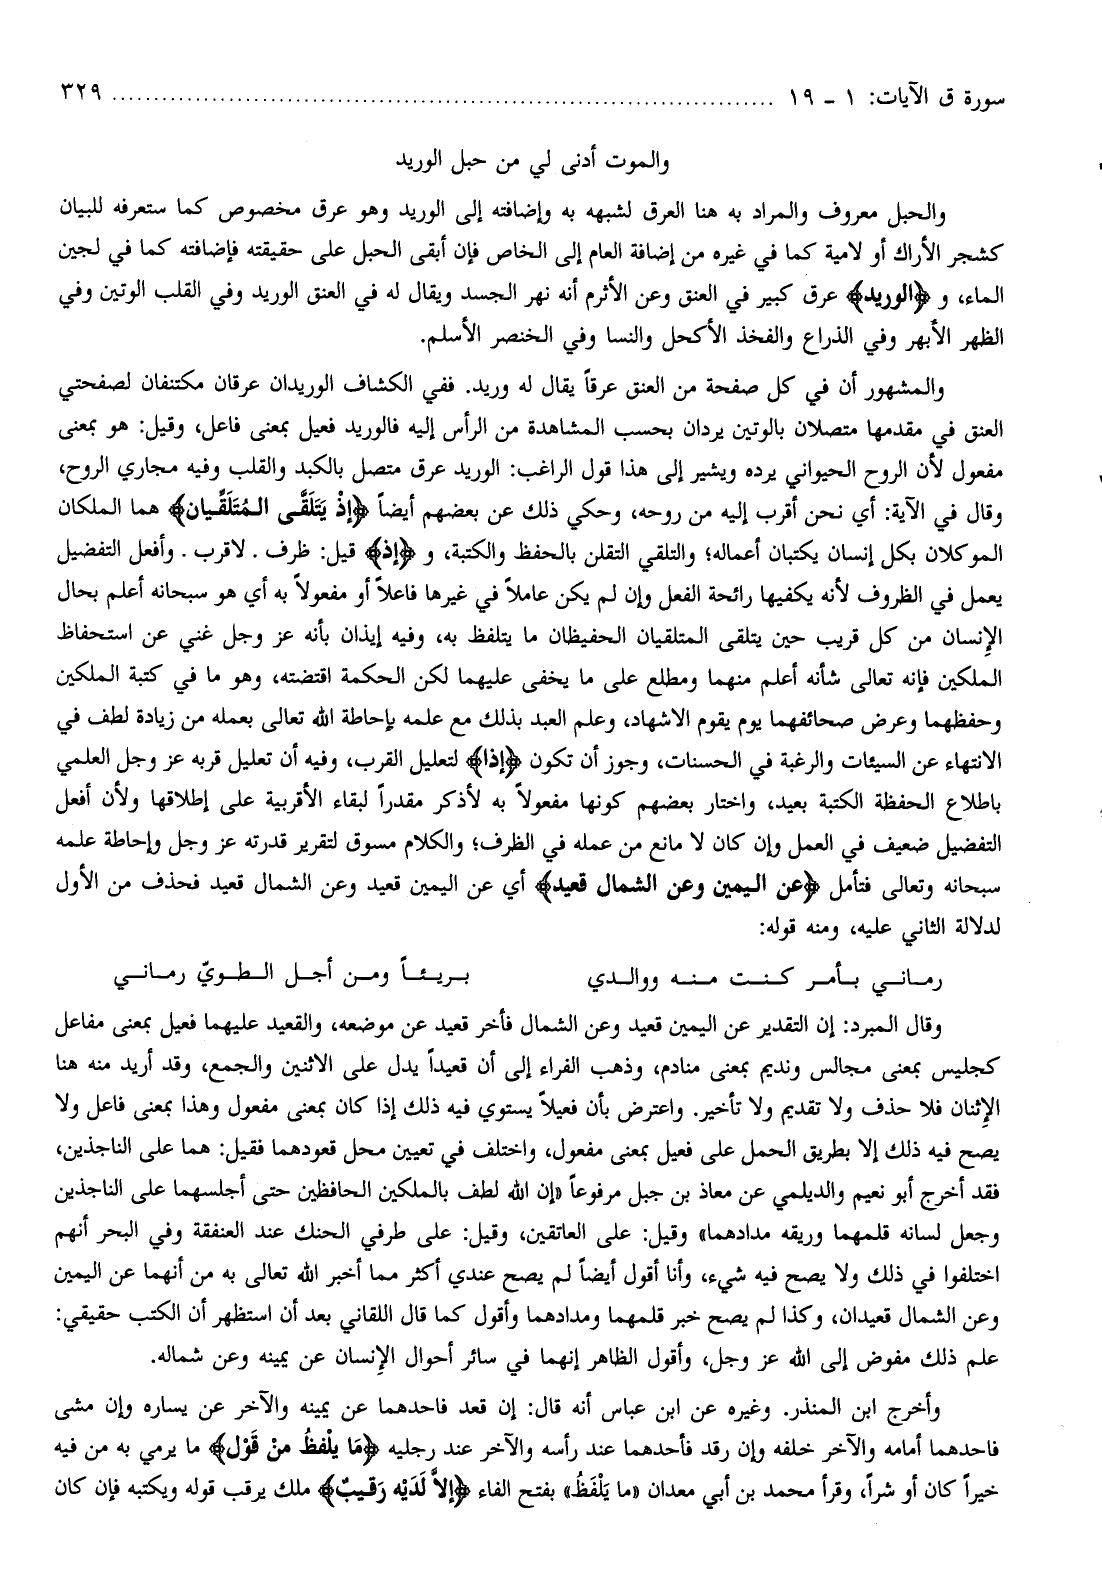 سورة ق الآيات: ١ - ١٩ ........................................................................ ٣٢٩
والموت أدنى لي من حبل الوريد
والحبل معروف والمراد به هنا العرق لشبهه به وإضافته إلى الوريد وهو عرق مخصوص كما ستعرفه للبيان
كشجر الأراك أو لامية كما في غيره من إضافة العام إلى الخاص فإن أبقى الحبل على حقيقته فإضافته كما في لجين
الماء، و ﴿الوريد﴾ عرق كبير في العنق وعن الأثرم أنه نهر الجسد ويقال له في العنق الوريد وفي القلب الوتين وفي
الظهر الأبهر وفي الذراع والفخذ الأكحل والنسا وفي الخنصر الأسلم.
والمشهور أن في كل صفحة من العنق عرقاً يقال له وريد. ففي الكشاف الوريدان عرقان مكتنفان لصفحتي
العنق في مقدمها متصلان بالوتين يردان بحسب المشاهدة من الرأس إليه فالوريد فعيل بمعنى فاعل، وقيل: هو بمعنى
مفعول لأن الروح الحيواني يرده ويشير إلى هذا قول الراغب: الوريد عرق متصل بالكبد والقلب وفيه مجاري الروح،
وقال في الآية: أي نحن أقرب إليه من روحه، وحكي ذلك عن بعضهم أيضاً ﴿إذْ يَتَلَقَّى المُتَلَقِّيان﴾ هما الملكان
الموكلان بكل إنسان يكتبان أعماله؛ والتلقي التقلن بالحفظ والكتبة، و ﴿إذ﴾ قيل: ظرف . لاقرب . وأفعل التفضيل
يعمل في الظروف لأنه يكفيها رائحة الفعل وإن لم يكن عاملاً في غيرها فاعلاً أو مفعولاً به أي هو سبحانه أعلم بحال
الإنسان من كل قريب حين يتلقى المتلقيان الحفيظان ما يتلفظ به، وفيه إيذان بأنه عز وجل غني عن استحفاظ
الملكين فإنه تعالى شأنه أعلم منهما ومطلع على ما يخفى عليهما لكن الحكمة اقتضته، وهو ما في كتبة الملكين
وحفظهما وعرض صحائفهما يوم يقوم الاشهاد، وعلم العبد بذلك مع علمه بإحاطة الله تعالى بعمله من زيادة لطف في
الانتهاء عن السيئات والرغبة في الحسنات، وجوز أن تكون ﴿إذا﴾ لتعليل القرب، وفيه أن تعليل قربه عز وجل العلمي
باطلاع الحفظة الكتبة بعيد، واختار بعضهم كونها مفعولاً به لأذكر مقدراً لبقاء الأقربية على إطلاقها ولأن أفعل
التفضيل ضعيف في العمل وإن كان لا مانع من عمله في الظرف؛ والكلام مسوق لتقرير قدرته عز وجل وإحاطة علمه
سبحانه وتعالى فتأمل ﴿عن اليمين وعن الشمال قعيد﴾ أي عن اليمين قعيد وعن الشمال قعيد فحذف من الأول
لدلالة الثاني عليه، ومنه قوله:
رماني بأمر كنت منه ووالدي بريئاً ومن أجل الطويّ رماني
وقال المبرد: إن التقدير عن اليمين قعيد وعن الشمال فأخر قعيد عن موضعه، والقعيد عليهما فعيل بمعنى مفاعل
كجليس بمعنى مجالس ونديم بمعنى منادم، وذهب الفراء إلى أن قعيداً يدل على الاثنين والجمع، وقد أريد منه هنا
الإثنان فلا حذف ولا تقديم ولا تأخير. واعترض بأن فعيلاً يستوي فيه ذلك إذا كان بمعنى مفعول وهذا بمعنى فاعل ولا
يصح فيه ذلك إلا بطريق الحمل على فعيل بمعنى مفعول، واختلف في تعيين محل قعودهما فقيل: هما على الناجذين،
فقد أخرج أبو نعيم والديلمي عن معاذ بن جبل مرفوعاً «إن الله لطف بالملكين الحافظين حتى أجلسهما على الناجذين
وجعل لسانه قلمهما وريقه مدادهما» وقيل: على العاتقين، وقيل: على طرفي الحنك عند العنفقة وفي البحر أنهم
اختلفوا في ذلك ولا يصح فيه شيء، وأنا أقول أيضاً لم يصح عندي أكثر مما أخبر الله تعالى به من أنهما عن اليمين
وعن الشمال قعيدان، وكذا لم يصح خبر قلمهما ومدادهما وأقول كما قال اللقاني بعد أن استظهر أن الكتب حقيقي:
علم ذلك مفوض إلى الله عز وجل، وأقول الظاهر إنهما في سائر أحوال الإنسان عن يمينه وعن شماله.
وأخرج ابن المنذر. وغيره عن ابن عباس أنه قال: إن قعد فاحدهما عن يمينه والآخر عن يساره وإن مشى
فاحدهما أمامه والآخر خلفه وإن رقد فأحدهما عند رأسه والآخر عند رجليه ﴿مَا يلْفظُ منْ قَوْل﴾ ما يرمي به من فيه
خيراً كان أو شراً، وقرأ محمد بن أبي معدان «ما يَلْفَظُ» بفتح الفاء ﴿إلاَّ لَدَيْه رَقيبٌ﴾ ملك يرقب قوله ويكتبه فإن كان